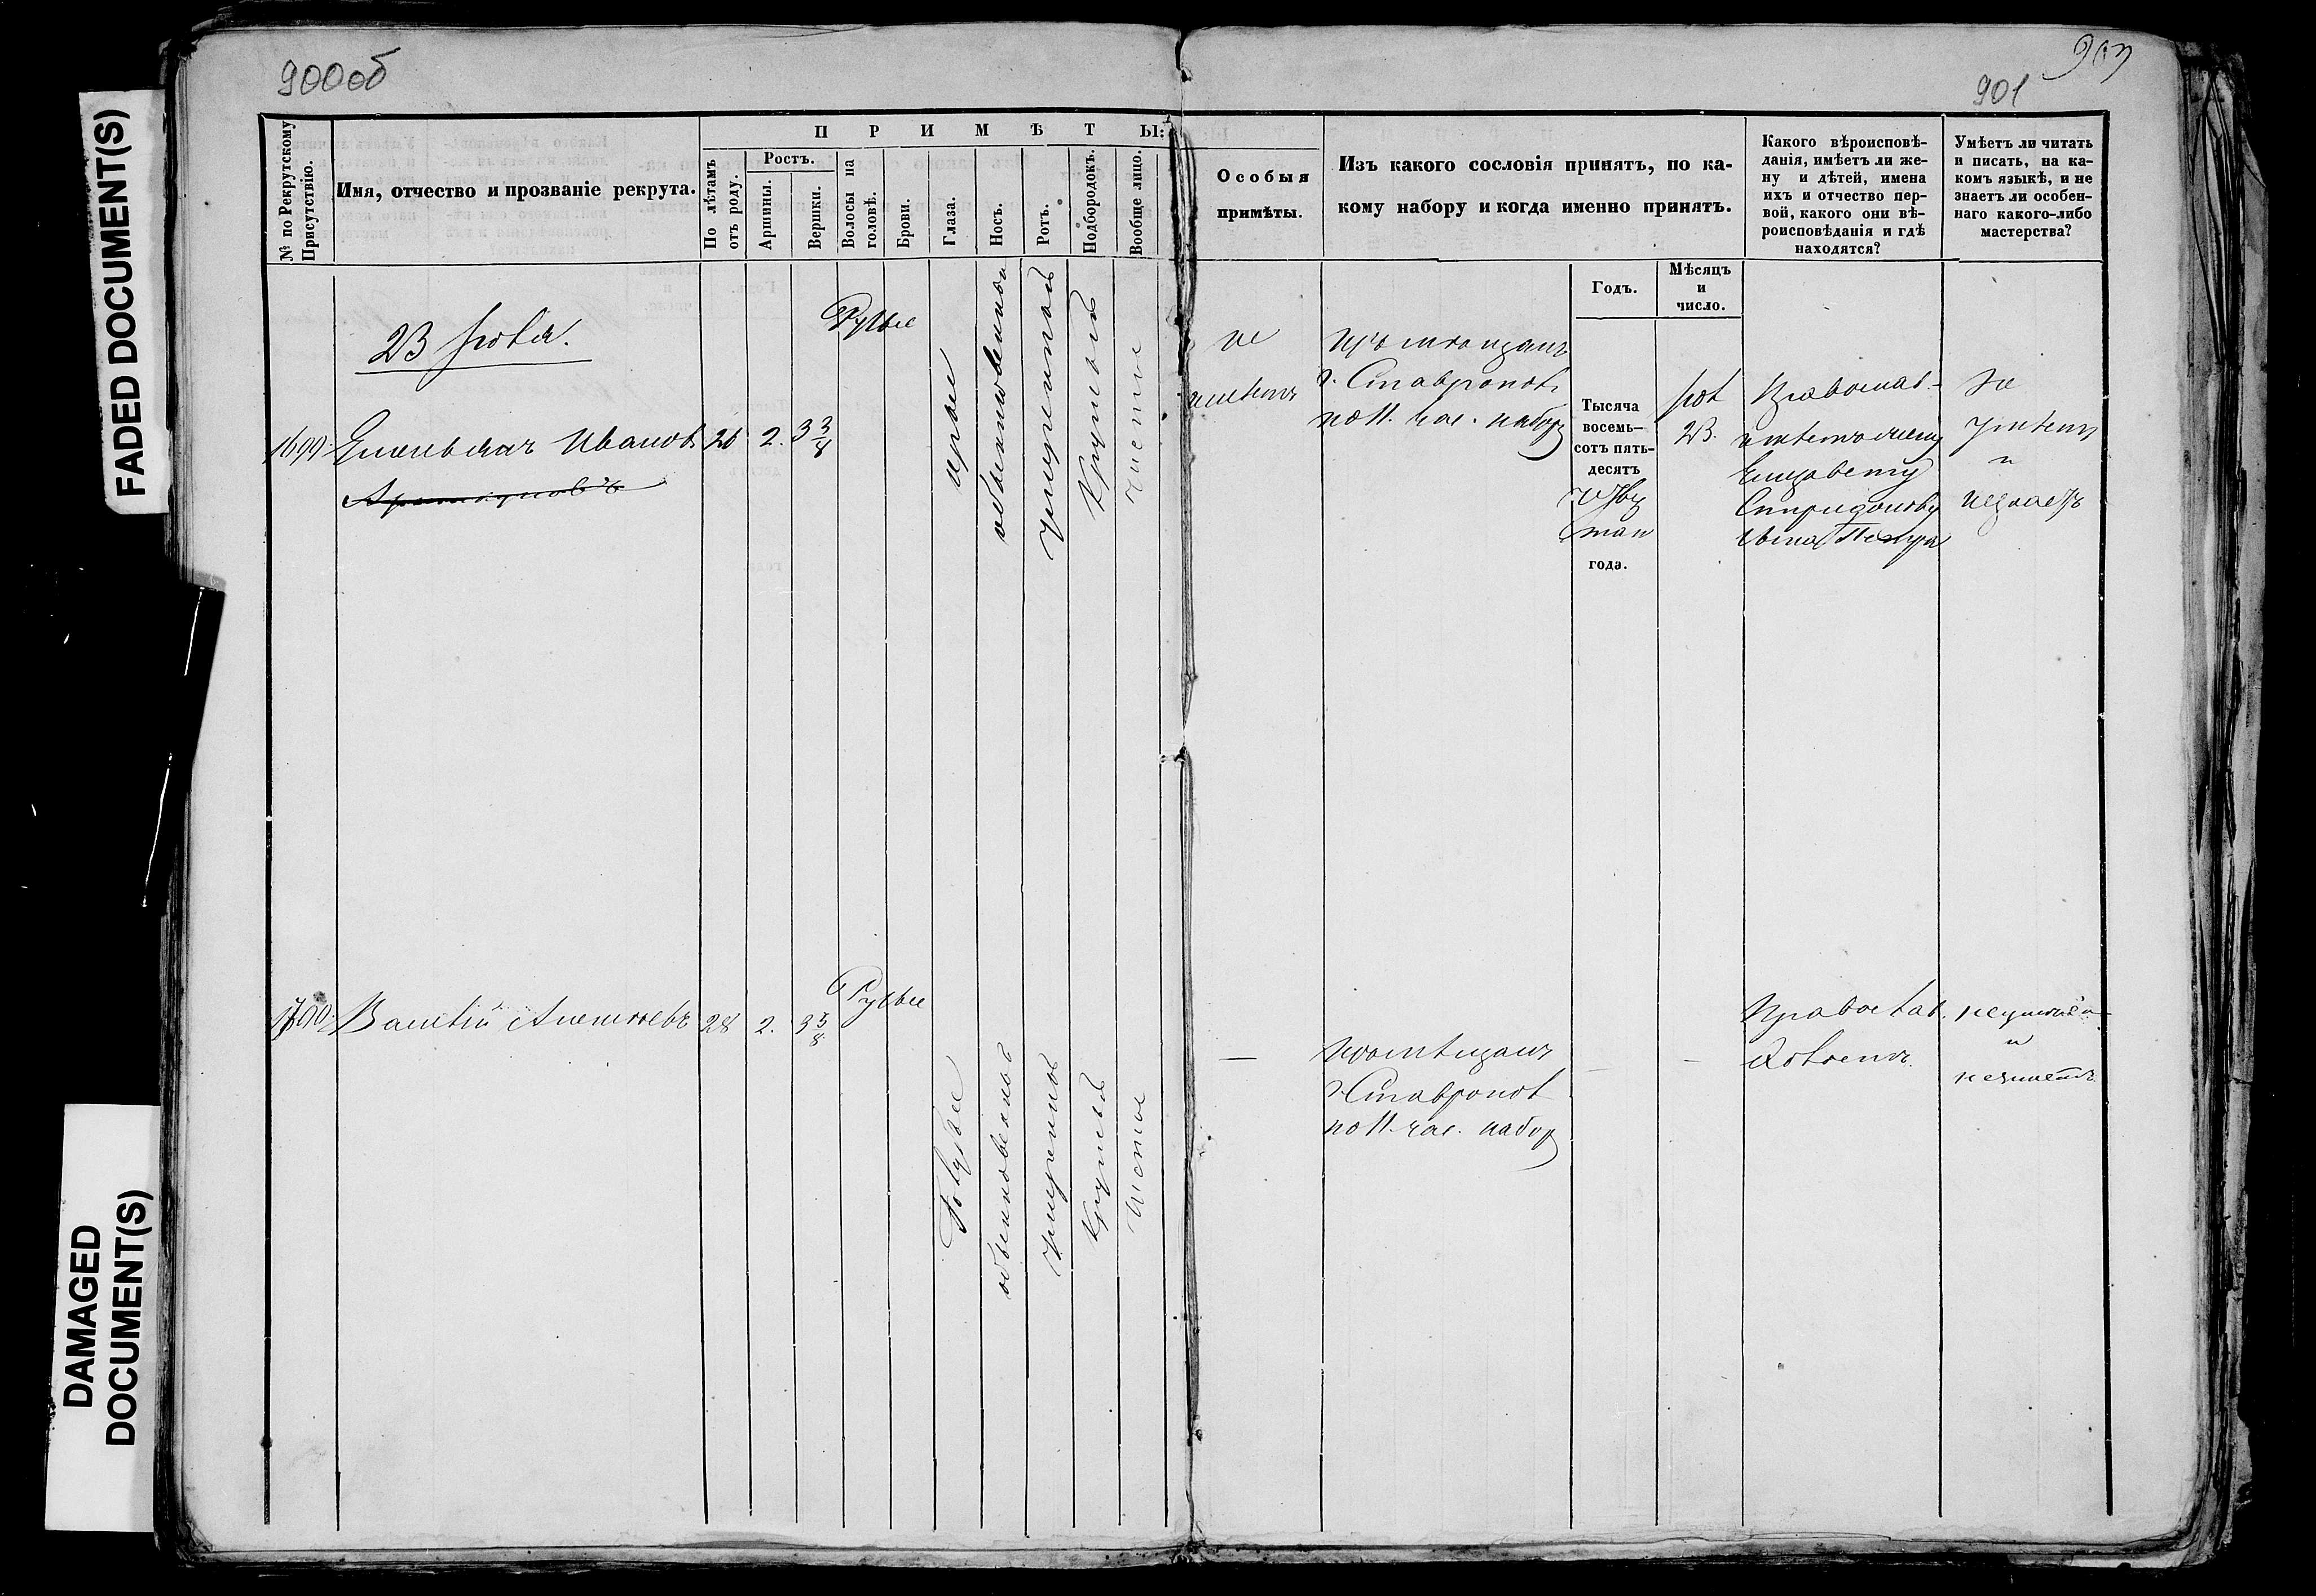 FADED DOCUMENT(S)
DAMAGED
DOCUMENT(S)
900об
901
№ по Рекрутскому
Присутствію.
Имя, отчество и прозваніе рекрута.
ПРИМѢТЫ:
По лѣтамъ
отъ роду.
Ростъ.
Аршины.
Вершки.
Волосы на
головѣ.
Брови.
Глаза.
Носъ.
Ротъ.
Подбородокъ.
Вообще лицо.
Особыя
примѣты.
Изъ какого сословія принятъ, по ка-
кому набору и когда именно принятъ.
Какого вѣроисповѣ-
данія, имѣетъ ли же-
ну и дѣтей, имена
ихъ и отчество пер-
вой, какого они вѣ-
роисповѣданія и гдѣ
находятся?
Умѣетъ ли читать
и писать, на ка-
комъ языкѣ, и не
знаетъ ли особен-
наго какого-либо
мастерства?
Годъ.
Мѣсяцъ
и
число.
23
1699.
Емельянъ Ивановъ
26
2.
3 3/8
Русые
сѣрые
обыкновенной
умеренной
Круглой
чистое
не
имѣетъ
изъ мѣщанъ
г. Ставропол
по 11. час. набору
Тысяча
восемь-
сотъ пять-
десятъ
года.
23.
Православ-
имѣетъ жену
Елизавету
Спиридонову
сына Петра
не
умѣетъ
и
незнаетъ
1700.
Василій Алексѣевъ
28
2.
3 3/8
Русые
Голубые
обыкновенной
умеренной
Круглой
чистое
—
изъ мѣщанъ
г. Ставропол
по 11. час. набор
—
—
Православ.
Холостъ.
неумѣет
и
незнаетъ